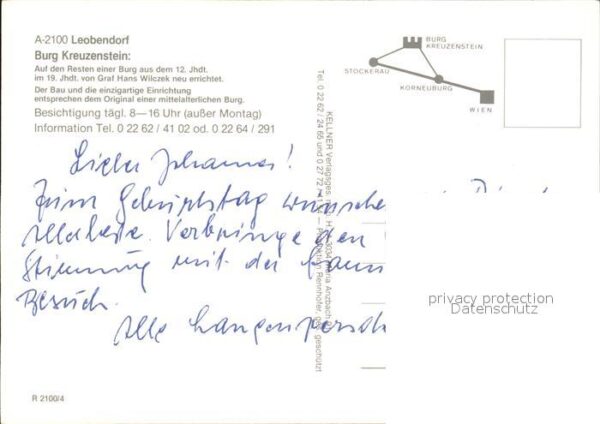 A-2100 Leobendorf
Burg Kreuzenstein:
Auf den Resten einer Burg aus dem 12. Jhdt.
im 19. Jhdt. von Graf Hans Wilczek neu errichtet.
Der Bau und die einzigartige Einrichtung
entsprechen dem Original einer mittelalterlichen Burg.
Besichtigung tägl. 8—16 Uhr (außer Montag)
Information Tel. 0 22 62 / 41 02 od. 0 22 64 / 291
BURG
KREUZENSTEIN
STOCKERAU
KORNEUBURG
WIEN
Lieber Johannes!
Zum Geburtstag wünsche
Allerbeste. Verbringe den
Stimmung mit der
Besuch.
Alle
KELLNER Verlagsges. 3034 Maria Anzbach
Tel. 0 22 62 / 24 65 und 0 27 72 Produktion Rennhofer, ges. geschützt
privacy protection
Datenschutz
R 2100/4